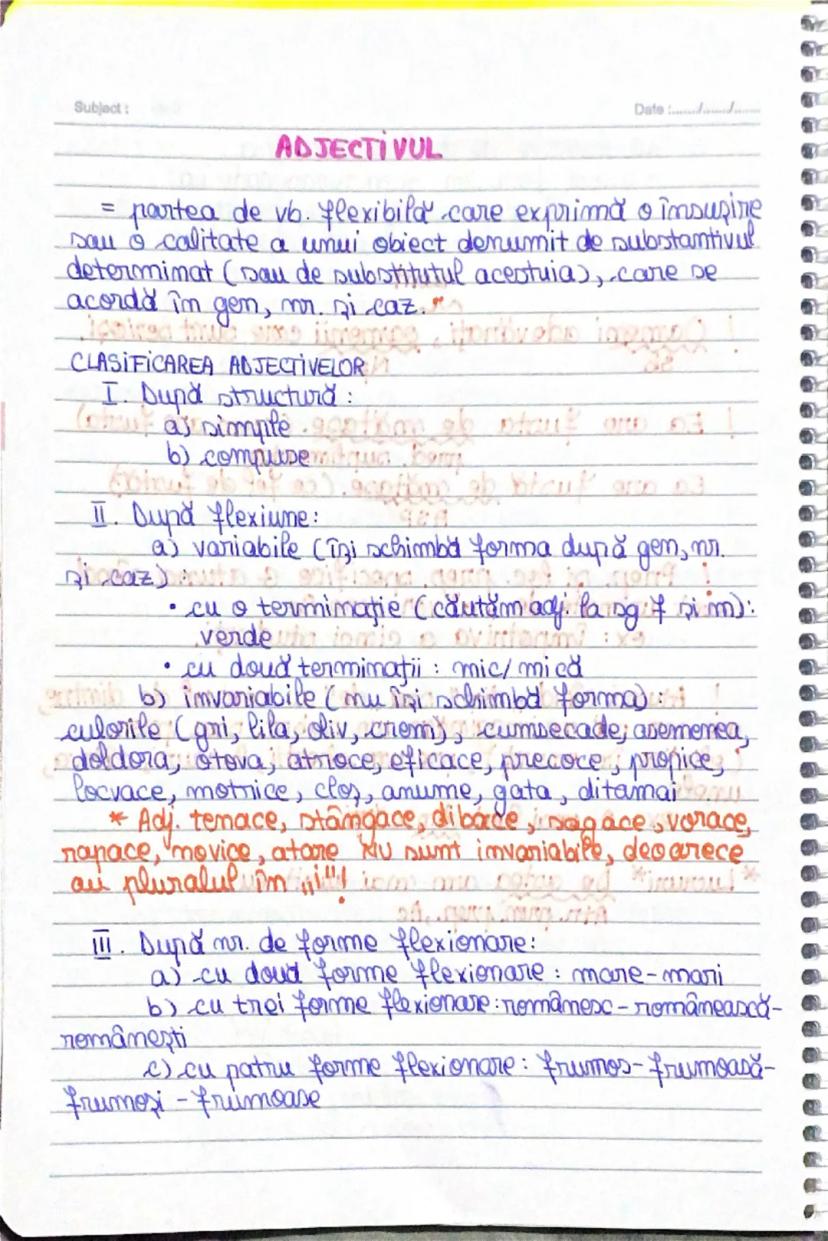 Subject :
Date :....../....../......
ADJECTIVUL
= partea de vb. flexibilă care exprimă o însușire
sau o calitate a unui obiect denumit de substantivul
determinat (sau de substitutul acestuia), care se
acordă în gen, nr. și caz.
CLASIFICAREA ADJECTIVELOR
I. După structură :
a) simple
b) compuse
II. După flexiune:
a) variabile (își schimbă forma după gen, nr.
și caz) :
• cu o terminație (căutăm adj. la sg f și m):
verde
• cu două terminații : mic/mică
b) invariabile (nu își schimbă forma) :
culorile (gri, lila, oliv, crem), cumsecade, asemenea,
doldora, otova, atroce, eficace, precoce, propice,
locvace, motrice, cloș, anume, gata, ditamai
* Adj. tenace, stângace, dibace, sagace, vorace,
rapace, novice, atare NU sunt invariabile, deoarece
au pluralul în „i"!
III. După nr. de forme flexionare:
a) cu două forme flexionare : mare-mari
b) cu trei forme flexionare: românesc - românească-
românești
c) cu patru forme flexionare : frumos-frumoasă-
frumoși - frumoase